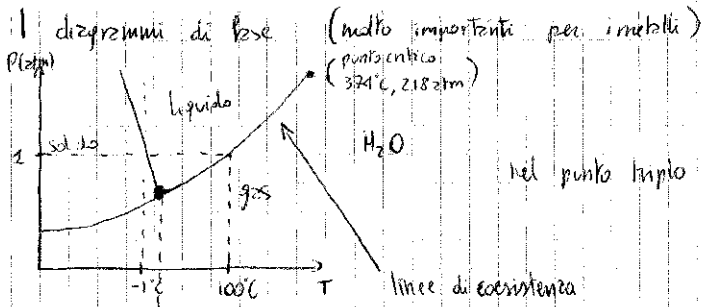 I diagrammi di fase (molto importanti per i metalli)
P(atm)
(punto critico
374°C, 218 atm)
liquido
solido
1
H₂O
nel punto triplo
gas
-1°C
100°C
T
linee di coesistenza